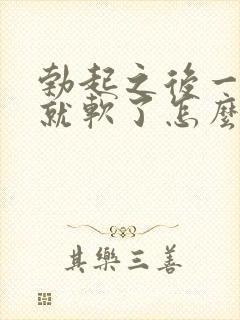 勃起之後一
就軟了怎麼
其樂三善